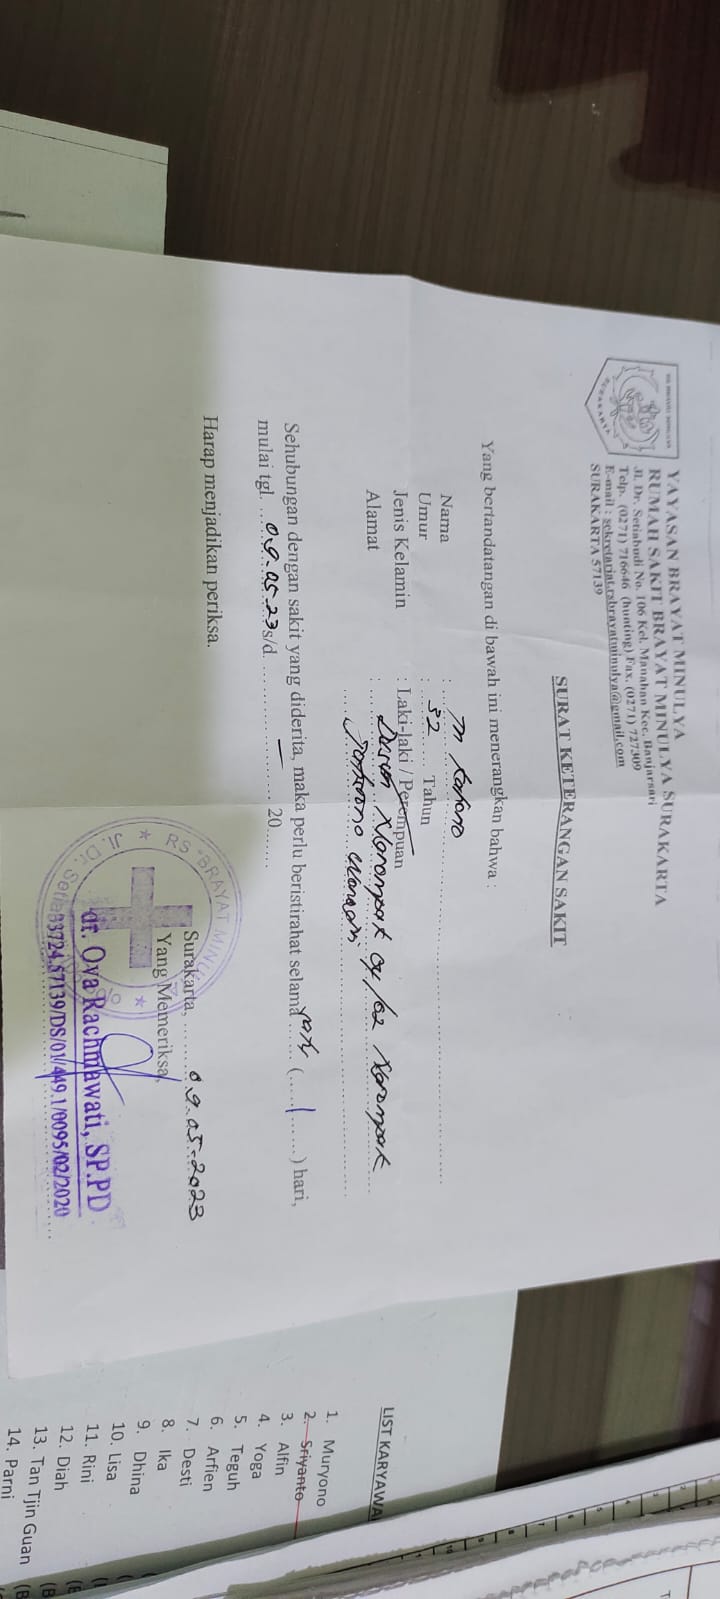 YAYASAN BRAYAT MINULYA
RUMAH SAKIT BRAYAT MINULYA SURAKARTA
Jl. Dr. Setiabudi No. 106 Kel. Manahan Kec. Banjarsari
Telp. (0271) 716646 (hunting) Fax. (0271) 727309
E-mail : sekretariat.rsbrayatminulya@gmail.com
SURAKARTA 57139
SURAT KETERANGAN SAKIT
Yang bertandatangan di bawah ini menerangkan bahwa :
Nama :
Umur : 32 Tahun
Jenis Kelamin : Laki-laki / Perempuan
Alamat : 04/02
Sehubungan dengan sakit yang diderita, maka perlu beristirahat selama ...... (...1...) hari,
mulai tgl. 09.05.23 s/d. — 20......
Harap menjadikan periksa.
Surakarta, 09.05.2023
Yang Memeriksa,
RS BRAYAT MINU
Jl. Dr. Setia
dr. Ova Rachmawati, SP.PD
33724.57139/DS/01/449.1/0095/02/2020
LIST KARYAWA
1. Muryono
2. Sriyanto
3. Alfin
4. Yoga
5. Teguh
6. Arfien
7. Desti
8. Ika
9. Dhina
10. Lisa
11. Rini
12. Diah
13. Tan Tjin Guan
14. Parni